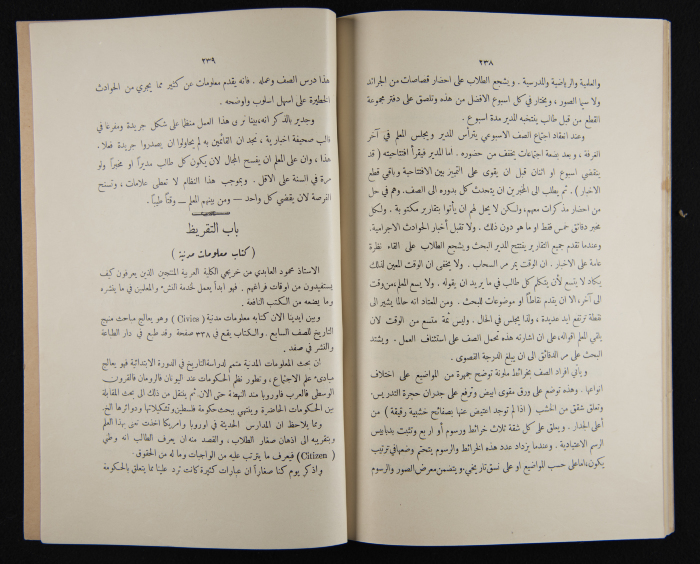 ٢٣٨
والعلمية والرياضية والمدرسية . ويشجع الطلاب على احضار قصاصات من الجرائد
ولا سيما الصور ، ويختار في كل اسبوع الافضل من هذه وتلصق على دفتر مجموعة
القطع من قبل طالب ينتخبه المدير مدة اسبوع .
وعند انعقاد اجتماع الصف الاسبوعي يترأس المدير ويجلس المعلم في آخر
الغرفة ، و بعد بضعة اجتماعات يخفف من حضوره . اما المدير فيقرأ افتتاحيته ( قد
ينقضي اسبوع او اثنان قبل ان يقوى على التمييز بين الافتتاحية وباقي قطع
الاخبار ) . ثم يطلب الى المخبرين ان يتحدث كل بدوره الى الصف . وهم في حل
من احضار مذكرات معهم ولكن لا يحل لهم ان يأتوا بتقارير مكتوبة . ولكل
مخبر دقائق خمس فقط او ما هو دون ذلك . ولا تقبل أخبار الحوادث الاجرامية.
وعندما تقدم جميع التقارير يفتتح المدير البحث ويشجع الطلاب على القاء نظرة
عامة على الاخبار . ان الوقت يمر مر السحاب . ولا يخفى ان الوقت المعين لذلك
يكاد لا يتسع لأن يتكلم كل طالب في ما يريد ان يقوله . ولا يسع المعلم من وقت
الى آخر الا ان يقدم نقاطاً او موضوعات للبحث . ومن المعتاد انه حالما يشير الى
نقطة ترتفع ايد عديدة ، ولذا يجلس في الحال . وليس ثمة متسع من الوقت لان
يلقي المعلم اقواله، على ان اشارته هذه تحمل الصف على استئناف العمل - ويشتد
البحث على مر الدقائق الى ان يبلغ الدرجة القصوى .
ويأتي افراد الصف بخرائط ملونة توضح جمهرة من المواضيع على اختلاف
انواعها . وهذه توضع على ورق مقوى ابيض وترفع على جدران حجرة التدريس.
وتعلق شقق من الخشب ( اذا لم توجد اعتيض عنها بصفائح خشبية رقيقة ) من
أعلى الجدار . ويعلق على كل شقة ثلاث خرائط ورسوم أو اربع وتثبت بدبابيس
الرسم الاعتيادية . وعندما يزداد عدد هذه الخرائط والرسوم يتحتم وضعها في ترتيب
يكون اما على حسب المواضيع او على نسق تاريخي ويتضمن معرض الصور والرسوم
٢٣٩
هذا درس الصف وعمله . فانه يقدم معلومات عن كثير مما يجري من الحوادث
الخطيرة على اسهل اسلوب واوضحه .
وجدير بالذكر انه، بينا نرى هذا العمل منظماً على شكل جريدة ومفرغا في
قالب صحيفة اخبارية ، نجد ان القائمين به لم يحاولوا ان يصدروا جريدة فعلا.
هذا ، وان على المعلم ان يفسح المجال لان يكون كل طالب مديراً او مخبراً ولو
مرة في السنة على الاقل . وبموجب هذا النظام لا تعطى علامات ، وتسنح
الفرصة لان يقضي كل واحد — ومن بينهم المعلم — وقتاً طيباً .
باب التقريظ
( كتاب معلومات مدنية )
الاستاذ محمود العابدي من خريجي الكلية العربية المنتجين الذين يعرفون كيف
يستفيدون من اوقات فراغهم . فهو ابداً يعمل لخدمة النشء والمعلمين في ما ينشره
وما يضعه من الكتب النافعة .
وبين ايدينا الان كتابه معلومات مدنية ( Civics ) وهو يعالج مباحث منهج
التاريخ للصف السابع . والكتاب يقع في ٣٣٨ صفحة وقد طبع في دار الطباعة
والنشر في صفد .
ان بحث المعلومات المدنية متمم لدراسة التاريخ في الدورة الابتدائية فهو يعالج
مبادىء علم الاجتماع ، وتطور نظم الحكومات عند اليونان فالرومان فالقرون
الوسطى فالعرب فاوروبا منذ النهضة حتى الان. ثم ينتقل من ذلك الى بحث المقابلة
بين الحكومات الحاضرة وينتهي ببحث حكومة فلسطين وتشكيلاتها ودوائرها الخ.
ومما يلاحظ ان المدارس الحديثة في اوروبا وامريكا اخذت تعنى بهذا العلم
وبتقريبه الى اذهان صغار الطلاب ، والقصد منه ان يعرف الطالب انه وطني
( Citizen ) فيعرف ما يترتب عليه من الواجبات وما له من الحقوق .
واذكر يوم كنا صغاراً ان عبارات كثيرة كانت ترد علينا مما يتعلق بالحكومة